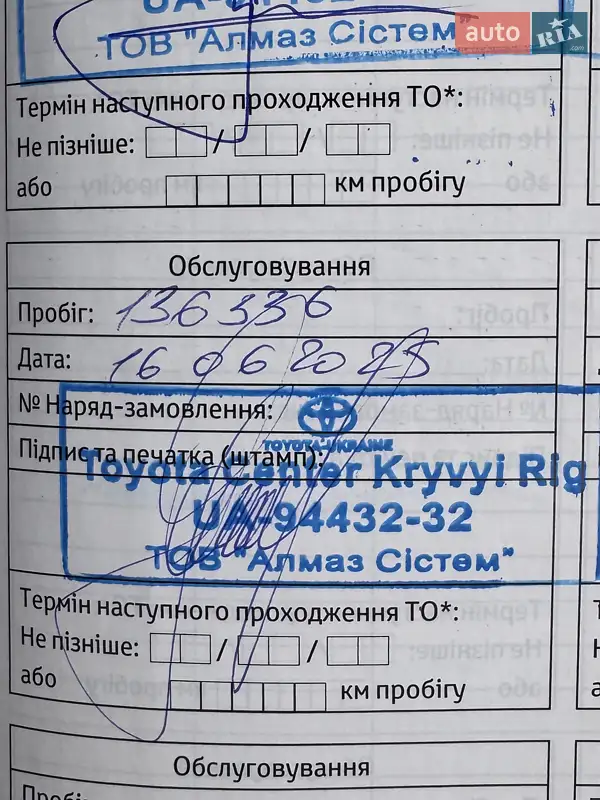 ТОВ "Алмаз Сістем"
auto RIA
.com
Термін наступного проходження ТО*:
Не пізніше: / /
або км пробігу
Обслуговування
Пробіг: 136336
Дата: 16 06 2025
№ Наряд-замовлення:
TOYOTA-UKRAINE
Підпис та печатка (штамп):
Toyota Center Kryvyi Rig
UA-94432-32
ТОВ "Алмаз Сістем"
Термін наступного проходження ТО*:
Не пізніше: / /
або км пробігу
Обслуговування